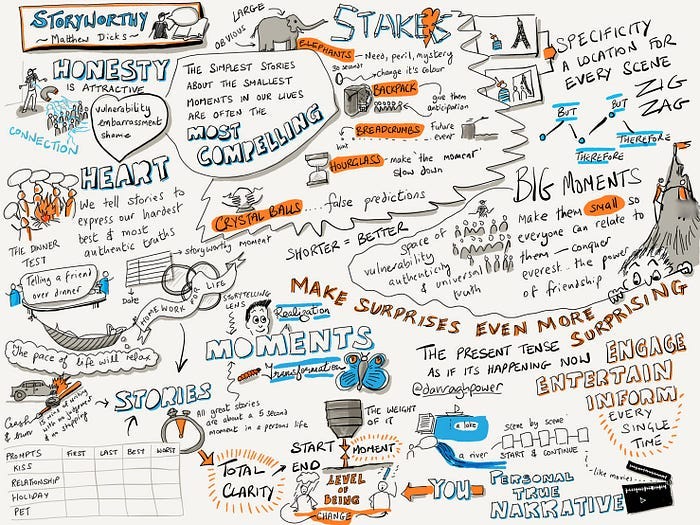 STORYWORTHY
~ Matthew Dicks ~
LARGE
OBVIOUS
STAKES
ELEPHANTS
- Need, peril, mystery
change it's colour
BACKPACK
give them
anticipation
BREADCRUMBS
hint
Future
event
HOURGLASS
- make 'the moment'
slow down
CRYSTAL BALLS
....false predictions
SPECIFICITY
A LOCATION FOR
EVERY SCENE
ZIG
ZAG
BUT
BUT
THEREFORE
THEREFORE
HONESTY
IS ATTRACTIVE
vulnerability
embarrassment
shame
CONNECTION
THE SIMPLEST STORIES
ABOUT THE SMALLEST
MOMENTS IN OUR LIVES
ARE OFTEN THE
MOST
COMPELLING
HEART
We tell stories to
express our hardest
best & most
authentic truths
THE DINNER
TEST
Telling a friend
over dinner
storyworthy moment
Date
HOMEWORK FOR LIFE
The pace of life will relax
SHORTER = BETTER
space of
vulnerability
authenticity
& universal
truth
BIG MOMENTS
Make them small so
everyone can relate to
them — conquer
everest.. the power
of friendship
MAKE SURPRISES EVEN MORE SURPRISING
STORYTELLING
LENS
Realization
MOMENTS
Transformation
THE PRESENT TENSE
AS IF ITS HAPPENING NOW
@danraghpower
ENGAGE
ENTERTAIN
INFORM
EVERY
SINGLE
TIME
Crash
& burn
STORIES
All great stories
are about a 5 second
moment in a persons life
PROMPTS FIRST LAST BEST WORST
KISS
RELATIONSHIP
HOLIDAY
PET
TOTAL
CLARITY
THE WEIGHT
OF IT
START
END
MOMENT
LEVEL OF
BEING
CHANGE
a lake
a river
scene by scene
START & CONTINUE
- like movies
YOU
PERSONAL
TRUE
NARRATIVE